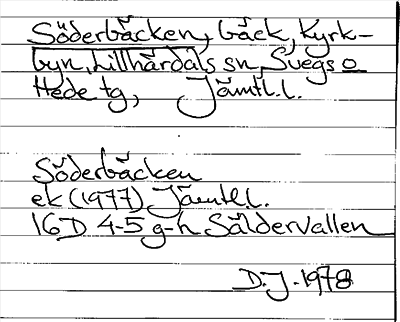 Söderbäcken, bäck, Kyrk-
byn, Lillhärdals sn, Svegs o
Hede tg, Jämtl.l.
Söderbäcken
ek (1977) Jämtl.l.
16D 4-5 g-h Säldervallen
D.J. 1978